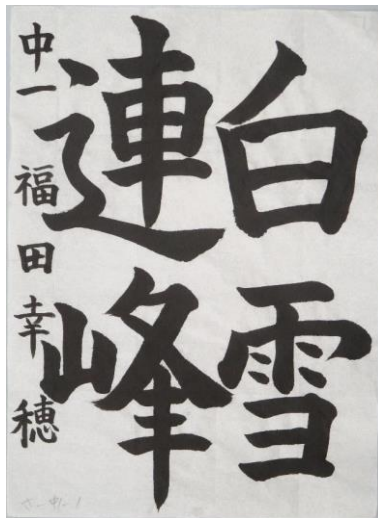 白雪
連峰
中一 福田幸穂